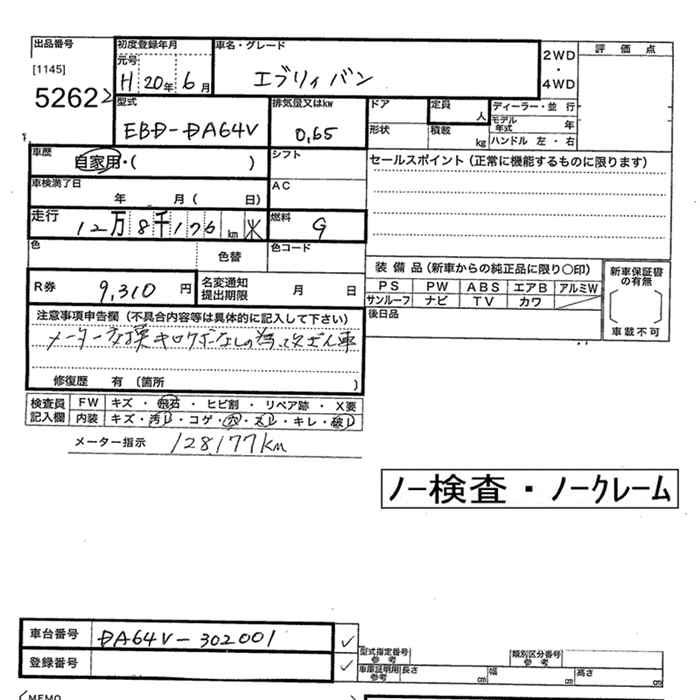 出品番号 初度登録年月 車名・グレード 2WD・4WD 評価点
[1145] 元号
52622 H 20年 6月 エブリィ バン
型式 排気量又はkw ドア 定員 人 ディーラー・並行
EBD-DA64V 0.65 形状 積載 kg モデル年式 年
ハンドル 左・右
車歴 自家用・( ) シフト セールスポイント(正常に機能するものに限ります)
車検満了日 年 月( 日) AC
走行 12万8千176km 燃料 G
色 色替 色コード
装備品(新車からの純正品に限り○印) 新車保証書の有無
R券 9,310円 名変通知提出期限 月 日 PS PW ABS エアB アルミW
サンルーフ ナビ TV カワ
後日品 車載不可
注意事項申告欄(不具合内容等は具体的に記入して下さい)
メーター交換キロ
修復歴 有(箇所 )
検査員記入欄 FW キズ・飛石・ヒビ割・リペア跡・X要
内装 キズ・汚れ・コゲ・穴・スレ・キレ・破れ
メーター指示 128,177km
ノー検査・ノークレーム
車台番号 DA64V-302001
登録番号 型式指定番号 参考 類別区分番号 参考
車庫証明用 参考 長さ cm 幅 cm 高さ cm
MEMO